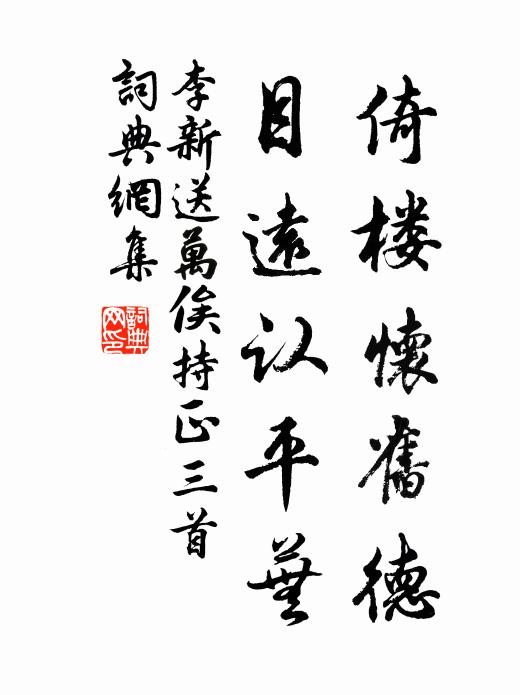 倚楼懷舊德
目遠认平蕪
李新送萬俟持正三首
詞典網集
詞典网印